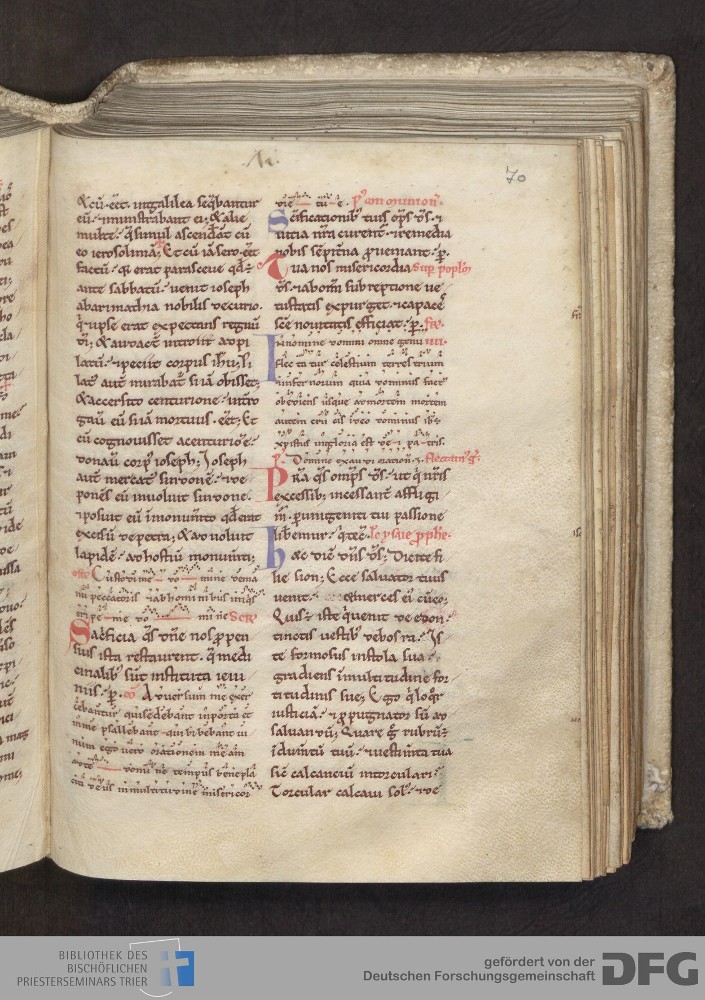 70
& cū eēt in galilea seq̄bantur
eū · & ministrabant ei · & alie
multe · q̄ simul ascenderāt cū
eo ierosolimā · Et cū iā sero eēt
factū · q̄ erat parasceue qd̄ ē
ante sabbatū · uenit ioseph
ab arimathia nobilis decurio ·
q̄ & ipse erat expectans regnū
dī · & audact̄ introiit ad pi
latū · & petiit corpus ihū · Pi
lat᷒ aut̄ mirabat᷒ si iā obisset ·
& accersito centurione · intro
gauit eū si iā mortuus eēt · Et
cū cognouisset a centurione ·
donauit corp᷒ ioseph · Ioseph
aut̄ mercat᷒ sindone · & de
ponēs eū inuoluit sindone ·
& posuit eū ī monumēto qd̄ erat
excisū de petra · & aduoluit
lapidē ad hostiū monumti ·
off̄ Custodi me do mine de manu
peccatoris & ab hominibus iniq̄s
eripe me do mine Secr̄
Sacrificia q̄s dn̄e nos ppen
sius ista restaurent · q̄ medi
cinalib᷒ sūt instituta ieiu
niis · p · co Aduersum me exer
cebantur qui sedebant in porta et
in me psallebant qui bibebant ui
num ego uero orationem meam
ad te domine tempus beneplaciti
deus in multitudine misericor
die tu e · P᷒ communion̄
Sc̄ificationib᷒ tuis om̄ps d̄s · &
uitia nr̄a curent · & remedia
nobis sēpitna pueniant · p ·
Tua nos misericordia Sup popl̄m
d̄s · & ab om̄i subreptione ue
tustatis expurget · & capaces
sc̄e nouitatis efficiat · p · fer̄ · iiii ·
In nomine domini omne genu
flec ta tur celestium terrestrium
& infernorum quia dominus factus
obediens usque ad mortem mortem
autem crucis ideo dominus ihs
xpistus in gloria est dei patris ·
p᷒ Domine exaudi orationē · flectam᷒ ḡ ·
Pra q̄s om̄ps d̄s · ut q̄ nr̄is
excessib᷒ incessant̄ affligi
m᷒ · p unigeniti tui passione
liberemur · q̄ tecū · Lc̄ ysaie pphe ·
Hec dic̄ dn̄s d̄s · Dicite fi
lie sion · Ecce saluator tuus
uenit · & merces ei᷒ cū eo ·
Quis ē iste q̄ uenit de edom ·
tinctis uestib᷒ de bosra · Is
te formosus in stola sua ·
gradiens ī multitudine for
titudinis sue · Ego q̄ loq̄r
iusticiā · & ppugnator sū ad
saluandū · Quare g̊ rubrū ē
idumtū tuū · & uestimta tua
sic̄ calcantiū in torculari ·
Torcular calcaui sol᷒ · & de
BIBLIOTHEK DES
BISCHÖFLICHEN
PRIESTERSEMINARS TRIER
gefördert von der
Deutschen Forschungsgemeinschaft
DFG